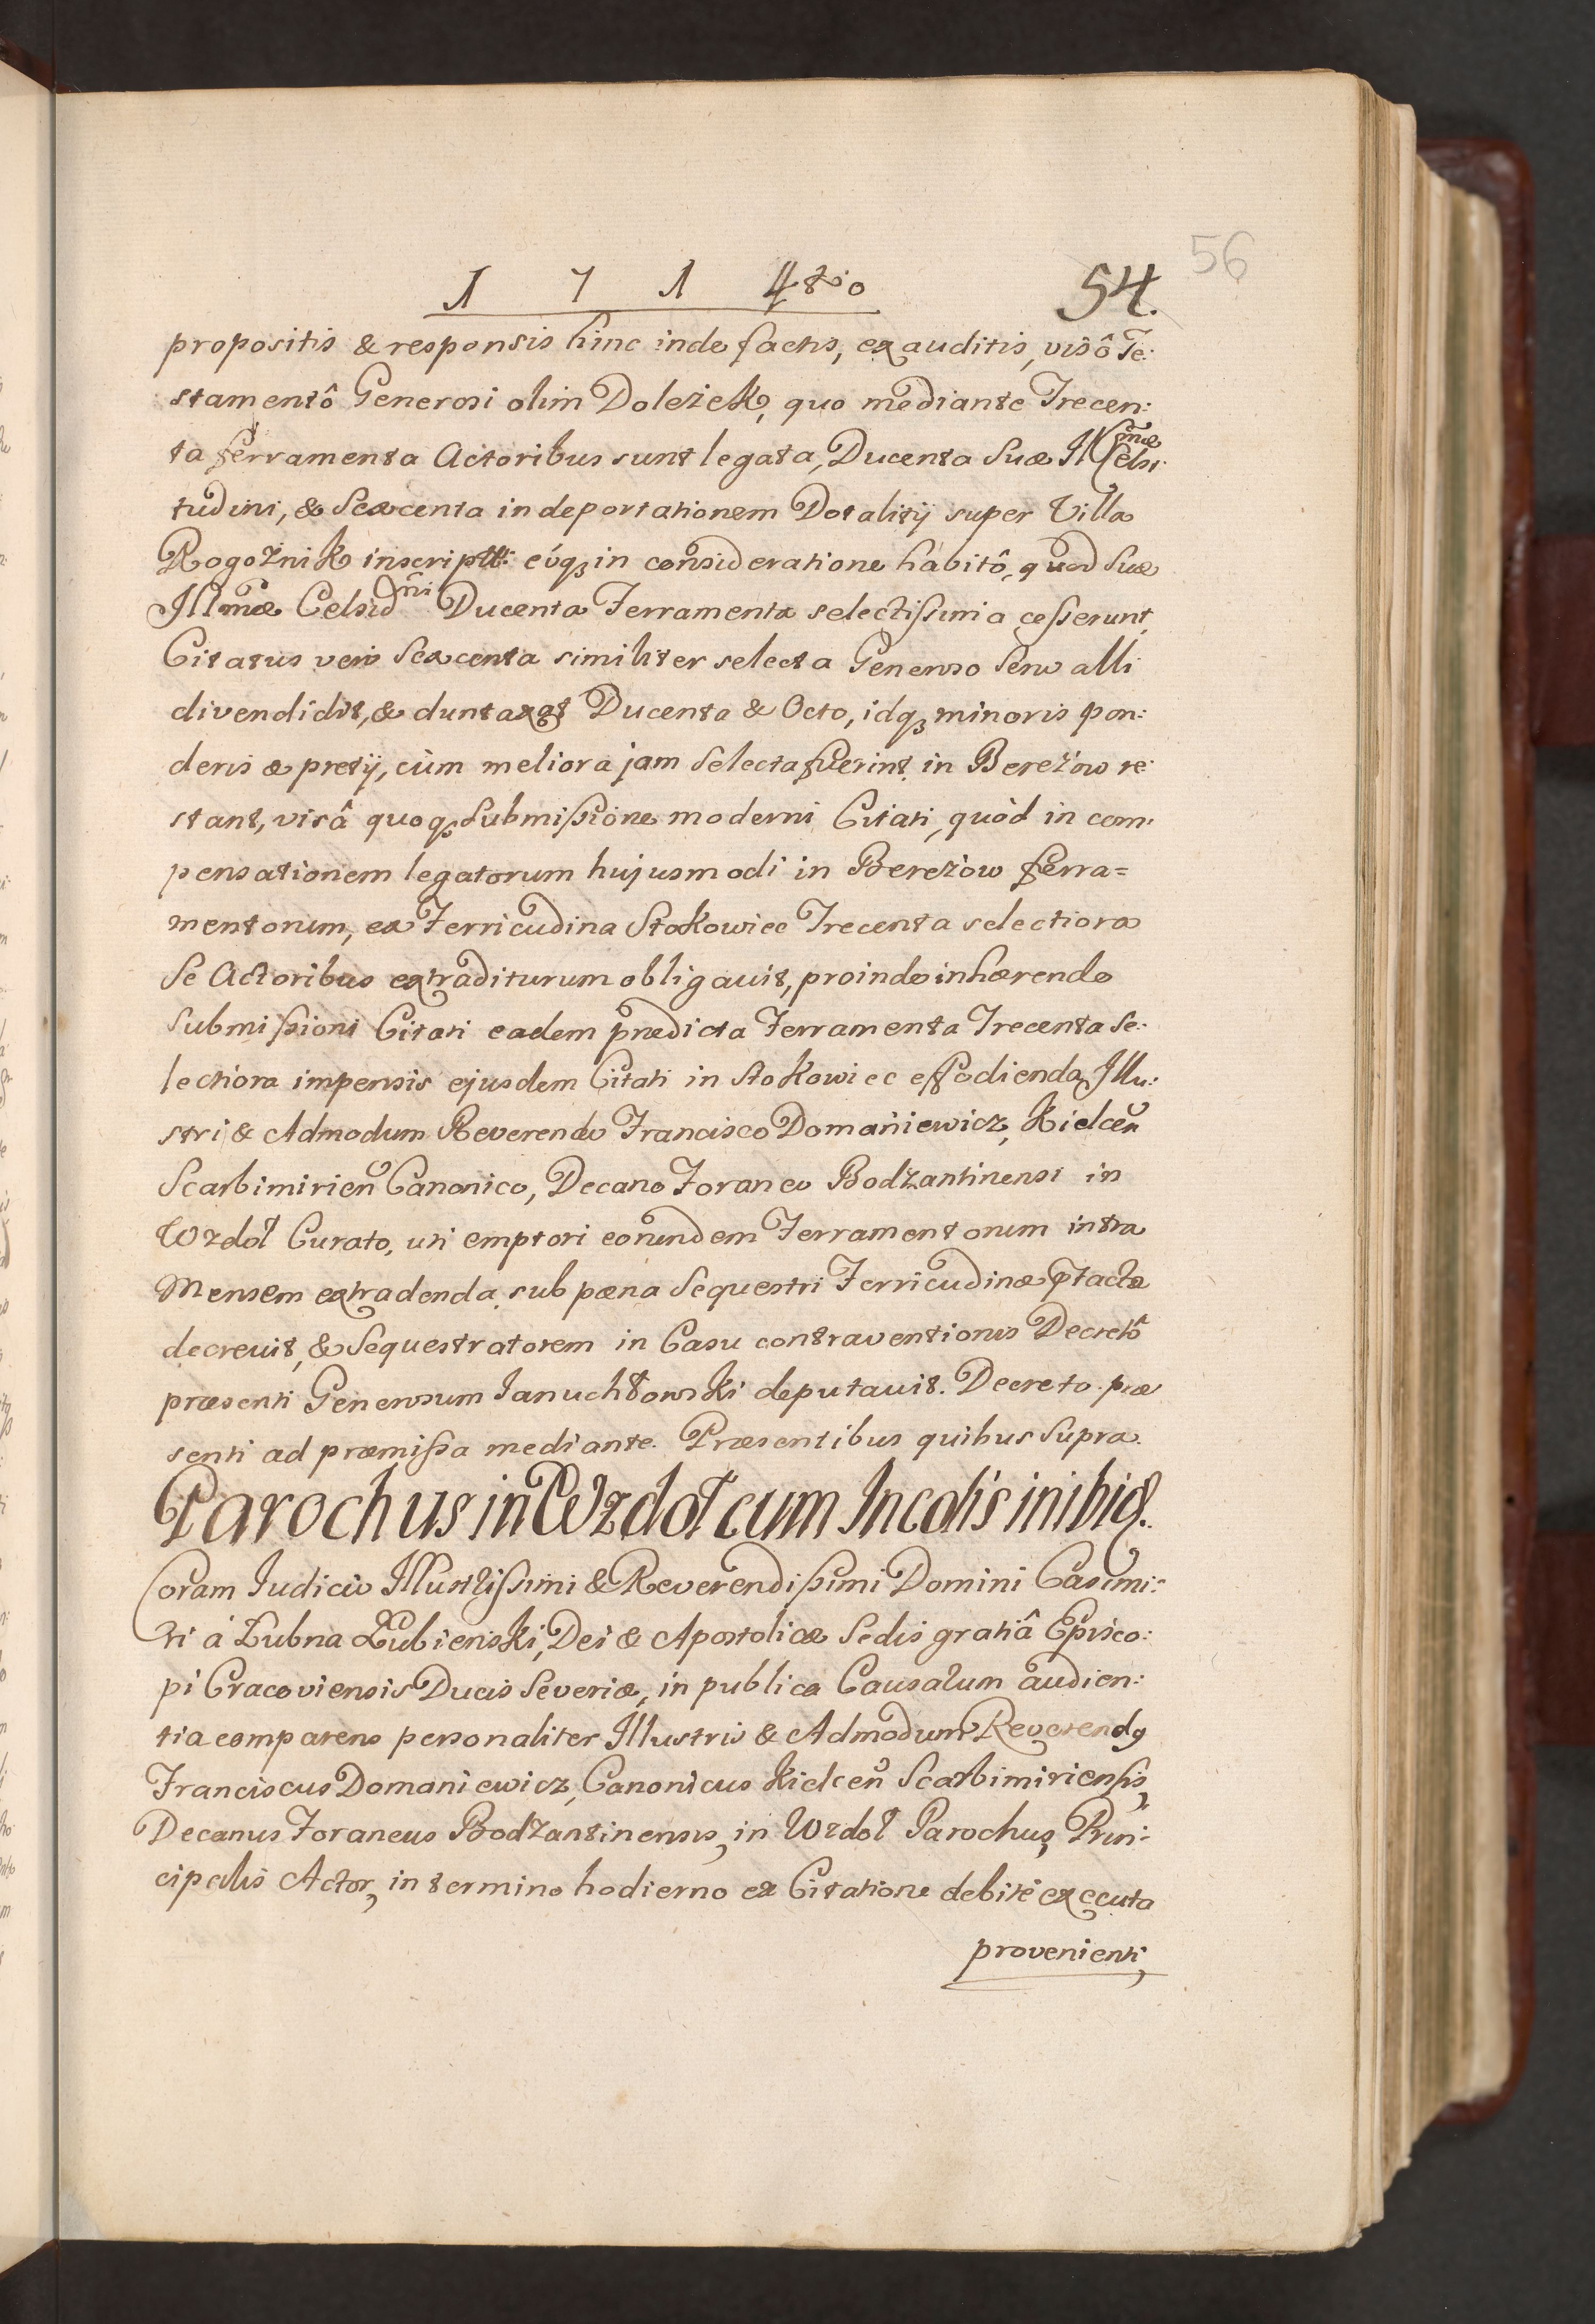 56
1 7 1 4to 54.
propositis & responsis hinc inde factis, exauditis, visô Te:
stamentô Generosi olim Doleżek, quo mediante Trecen:
ta ferramenta Actoribus sunt legata, Ducenta Suæ Illmæ Celsi:
tudini, & Sexcenta in deportationem Dotalitij super Villa
Rogoźnik inscripti: eoq3 in consideratione habitô, quod Suæ
Illmæ Celsidni Ducenta Ferramenta selectissima cesserunt,
Citatus verò Sexcenta similiter selecta Generoso Seno alli
divendidit, & duntaxat Ducenta & Octo, idq3 minoris pon:
deris & pretij, cùm meliora jam selecta fuerint in Bereżow re:
stant, visâ quoq3 Submissione moderni Citati, quòd in com:
pensationem legatorum hujusmodi in Bereżow ferra=
mentorum, ex Ferricudina Stokowiec Trecenta selectiora
Se Actoribus extraditurum obligavit, proinde inhærendo
Submissioni Citati eadem prædicta Ferramenta Trecenta se:
lectiora impensis ejusdem Citati in Stokowiec effodienda, Illu:
stri & Admodum Reverendo Francisco Domaniewicz, Kielcen
Scarbimirien Canonico, Decano Foraneo Bodzantinensi in
Wzdoł Curato, uti emptori eorundem Ferramentorum intra
Mensem extradenda sub pæna Sequestri Ferricudinæ ptactæ
decrevit, & Sequestratorem in Casu contraventionis Decretô
præsenti Generosum Januchtowski deputavit. Decreto præ
senti ad præmissa mediante. Præsentibus quibus Supra.
Parochus in Wzdoł cum Incolis inibi9.
Coram Judicio Illustrissimi & Reverendissimi Domini Casimi:
ri à Łubna Łubienski, Dei & Apostolicæ Sedis gratiâ Episco:
pi Cracoviensis Ducis Severiæ, in publica Causarum audien:
tia comparens personaliter Illustris & Admodum Reverend9
Franciscus Domaniewicz, Canonicus Kielcen Scarbimiriensis,
Decanus Foraneus Bodzantinensis, in Wzdoł Parochus, Prin:
cipalis Actor, in termino hodierno ex Citatione debitè executa
provenienti,